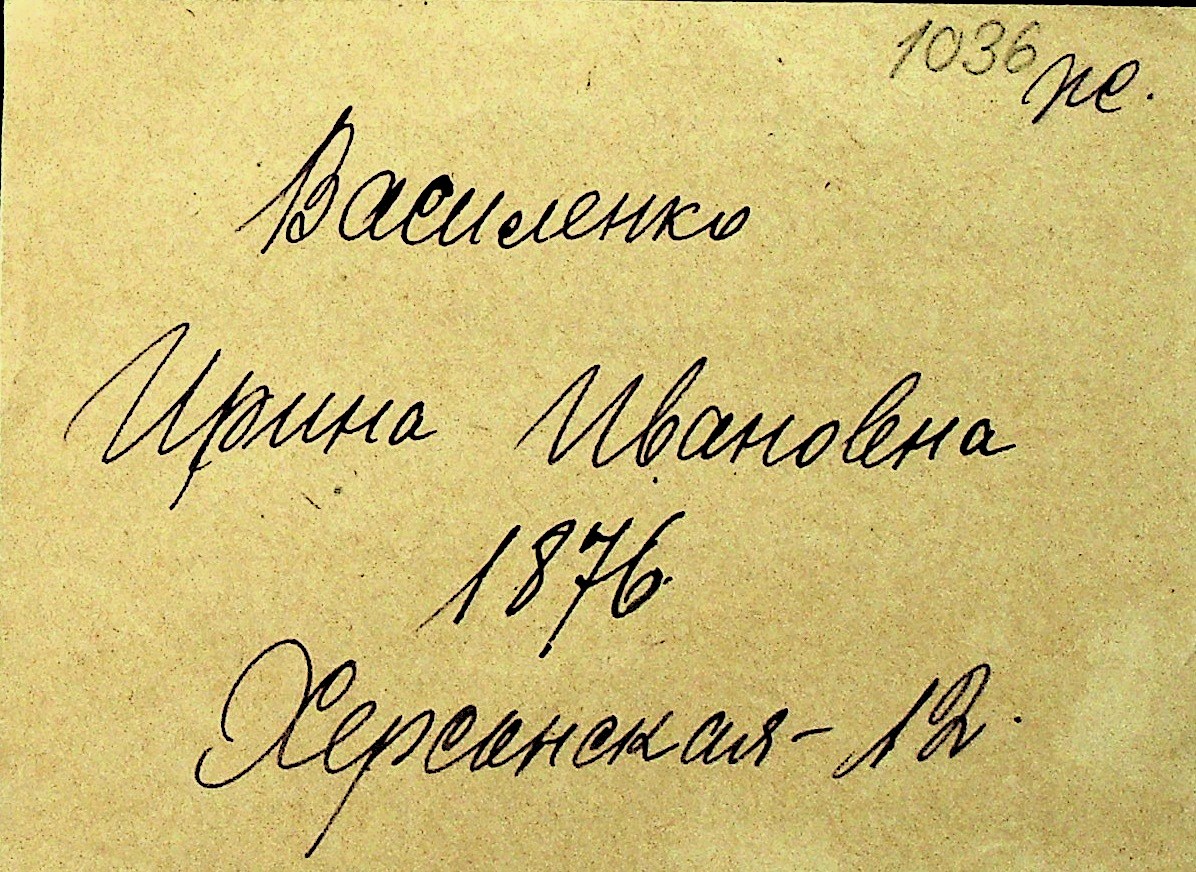 1036 пс.
Василенко
Ирина Ивановна
1876
Херсонская - 12.